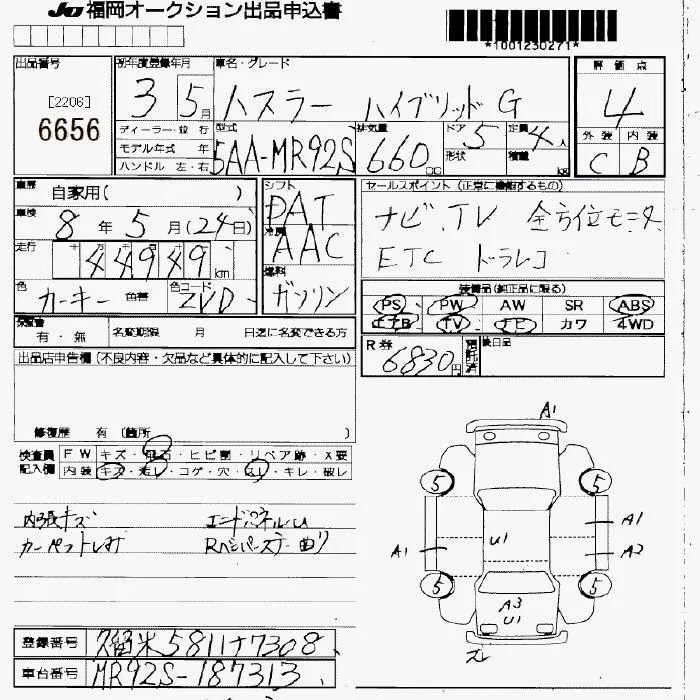 JU福岡オークション出品申込書
*1001230271*
出品番号 初年度登録年月 車名・グレード 評価点
[2206]
6656
3 5月 ハスラー ハイブリッド G 4
ディーラー・並行 型式 排気量 ドア 5 定員 4人 外装 内装
モデル年式 年 5AA-MR92S 660cc 形状 積載 kg C B
ハンドル 左・右
車歴 自家用( ) シフト DAT セールスポイント (正常に機能するもの)
車検 8年 5月(24日) 冷房 AAC ナビ.TV 全方位モニタ
走行 44949km 燃料 ガソリン ETC ドラレコ
色 カーキー 色替 色コード ZVD
装備品(純正品に限る)
PS PW AW SR ABS
エアB TV ナビ カワ 4WD
保証書 有・無 名変期限 月 日迄に名変できる方
R券 6830円 預託済 後日品
出品店申告欄(不良内容・欠品など具体的に記入して下さい)
修復歴 有 (箇所 )
検査員記入欄 FW キズ・飛石・ヒビ割・リペア跡・X要
内装 キズ・汚レ・コゲ・穴・スレ・キレ・破レ
内張キズ エンドパネルU
カーペットしみ Rベンパーステー曲り
A1
5 5
A1 U1 A1
A2
5 5
A3
U1
登録番号 久留米581サ7308
車台番号 MR92S-187313